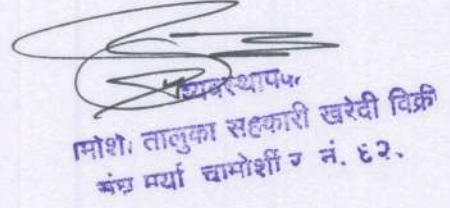 व्यवस्थापक
तालुका सहकारी खरेदी विक्री
संघ मर्या चामोर्शी र नं. ६२.